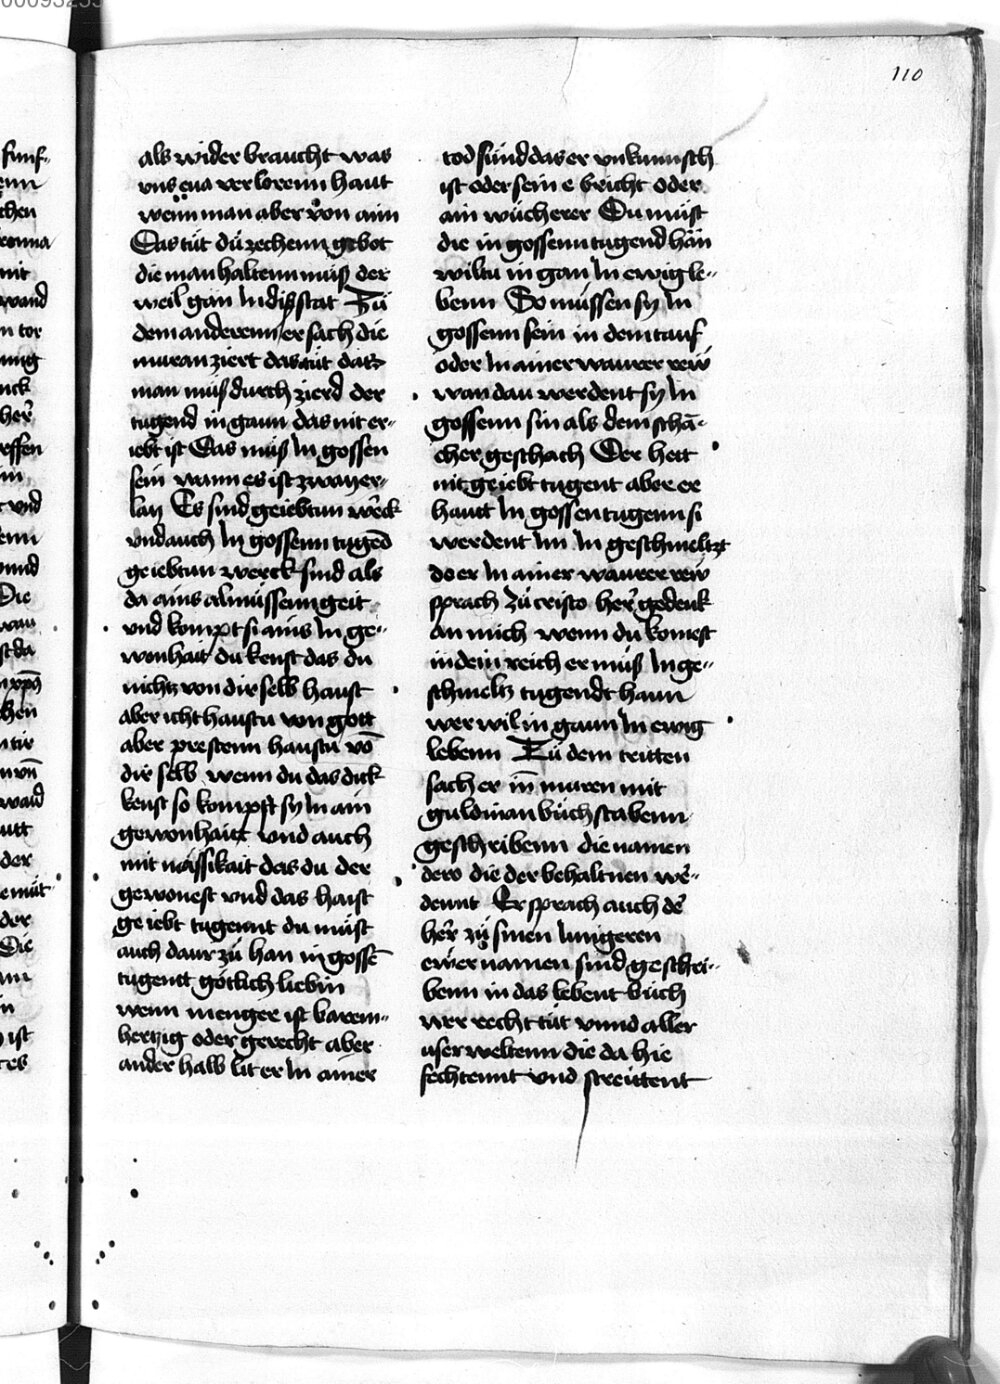 110
als wider braucht was
vns eua verlorenn haut
wenn man aber von ainn
Das tüt dü zechenn gebot
die man haltenn müß der
weil gan In diß stat Zü
dem anderenn er sach die
muran ziert das tüt daz
man müß durch zierd der
tugend in gann das nit er-
iebt ist Das müß In gossen
sein wann es ist zwayer-
lay Es sind geiebtun werck
vnd auch In gossenn tugēd
geiebtun werck sind als
da ains almüssenn geit
vnd kompt si ains In ge-
wonhait du kenst das du
nichtz von dir selb haust
aber icht haustu von gott
aber prestenn haustu vō
dir selb wenn du das dick
kenst so kompst sy In ain
gewonhait vnd auch
mit nässikait das du der
gewonest vnd das haist
geiebt tugennt du müst
auch daur zü han in gossē
tugent götlich liebin
wenn menger ist barem-
hertzig oder gerecht aber
ander halb lit er In ainer
tod sünd das er vnkunnsch
ist oder sein e bricht oder
ain wücherer Du müst
die in gossenn tugend hān
wiltu in gan In ewig le-
benn So müssen sy In
gossenn sein in dem tauf
oder In ainer waurer rew
wan dau werdent sy In
gossenn sin als dem schā-
cher geschach Der hett
nit geiebt tugent aber er
hautt In gossen tugenn si
werdent Im In geschmeltzt
do er In ainer waurer rew
sprach zü cristo her gedenk
an mich wenn du komest
in dein reich er müß In ge-
schmeltz tugendt hann
wer wil in gann In ewig
lebenn Zü dem tritten
sach er in muren mit
guldinan büchstabenn
geschribenn die namen
dero die der behaltnen wē-
dennt Er sprach auch dē
her zü sinen Iungeren
ewer namen sind geschri-
benn in das lebent büch
wer recht tüt vnnd aller
user weltenn die da hie
fechtennt vnd streittent